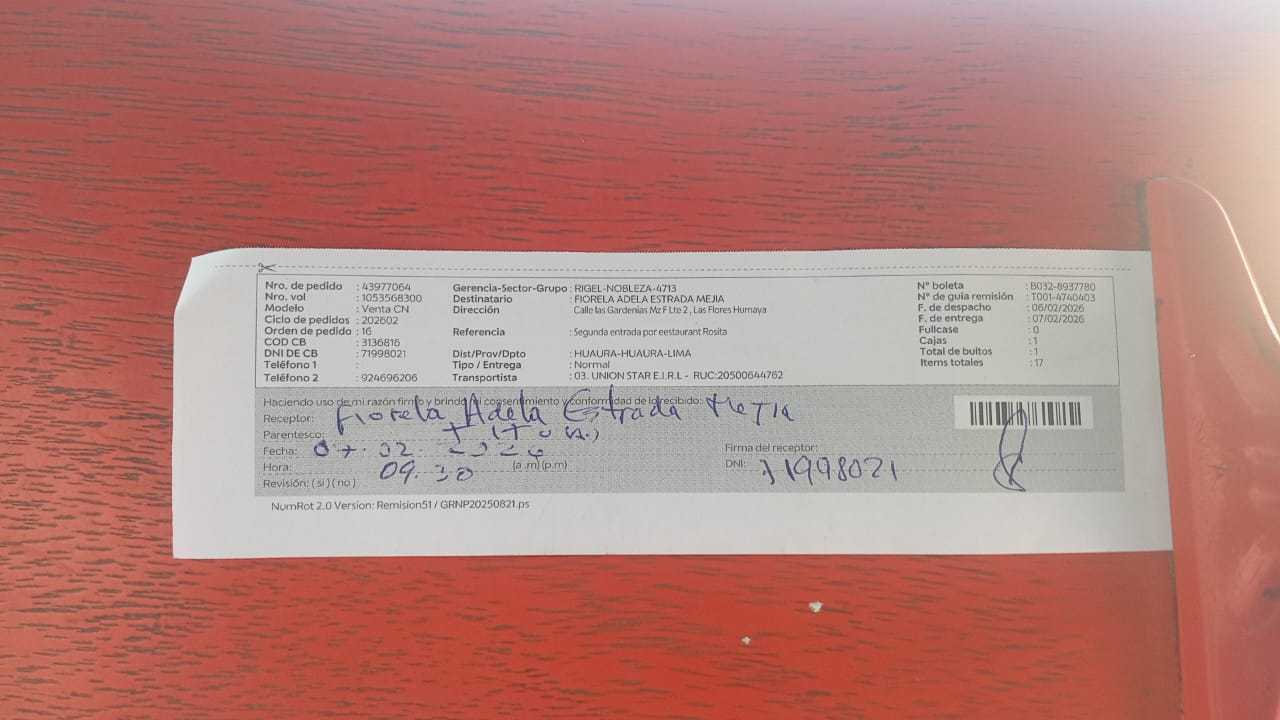 Nro. de pedido : 43977064 Gerencia-Sector-Grupo : RIGEL-NOBLEZA-4713 N° boleta : B032-8937780
Nro. vol : 1053568300 Destinatario : FIORELA ADELA ESTRADA MEJIA N° de guia remisión : T001-4740403
Modelo : Venta CN Dirección : Calle las Gardenias Mz F Lte 2 , Las Flores Humaya F. de despacho : 06/02/2026
Ciclo de pedidos : 202602 F. de entrega : 07/02/2026
Orden de pedido : 16 Referencia : Segunda entrada por eestaurant Rosita Fullcase : 0
COD CB : 3136816 Cajas : 1
DNI DE CB : 71998021 Dist/Prov/Dpto : HUAURA-HUAURA-LIMA Total de bultos : 1
Teléfono 1 : Tipo / Entrega : Normal Items totales : 17
Teléfono 2 : 924696206 Transportista : 03. UNION STAR E.I.R.L - RUC:20500644762
Haciendo uso de mi razón firmo y brindo mi consentimiento y conformidad de lo recibido:
Receptor: Fiorela Adela Estrada Mejia
Parentesco:
Fecha: 07.02. Firma del receptor:
Hora: 09.30 (a .m) (p.m) DNI: 71998021
Revisión: ( si ) ( no )
NumRot 2.0 Version: Remision51 / GRNP20250821.ps